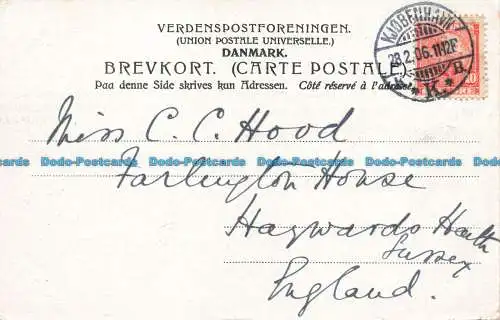 VERDENSPOSTFORENINGEN.
(UNION POSTALE UNIVERSELLE.)
DANMARK.
BREVKORT. (CARTE POSTALE.)
Paa denne Side skrives kun Adressen. Côté réservé à l'adresse.
KJØBENHAVN
23.2.06. 11-12F
K. B.
Miss C. C. Hood
Farlington House
Haywards Heath
Sussex
England.
Dodo-Postcards Dodo-Postcards Dodo-Postcards Dodo-Postcards Dodo-Postcards Dodo-Postcards